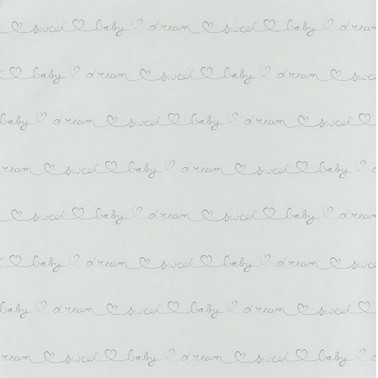 sweet baby dream sweet baby dream
baby dream sweet baby dream sweet
baby dream sweet baby dream sweet
dream sweet baby dream sweet baby
sweet baby dream sweet baby dream
baby dream sweet baby dream sweet
baby dream sweet baby dream sweet
dream sweet baby dream sweet baby